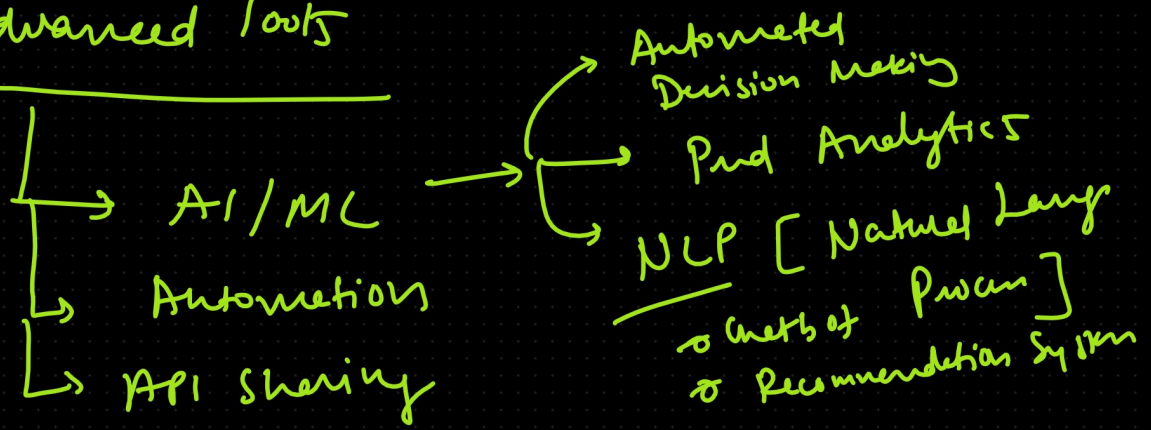 dvanced Tools
AI/ML
Automation
API Sharing
Automated
Decision Making
Pred Analytics
NLP [Natural Lang
Process]
Chatbot
Recommendation System